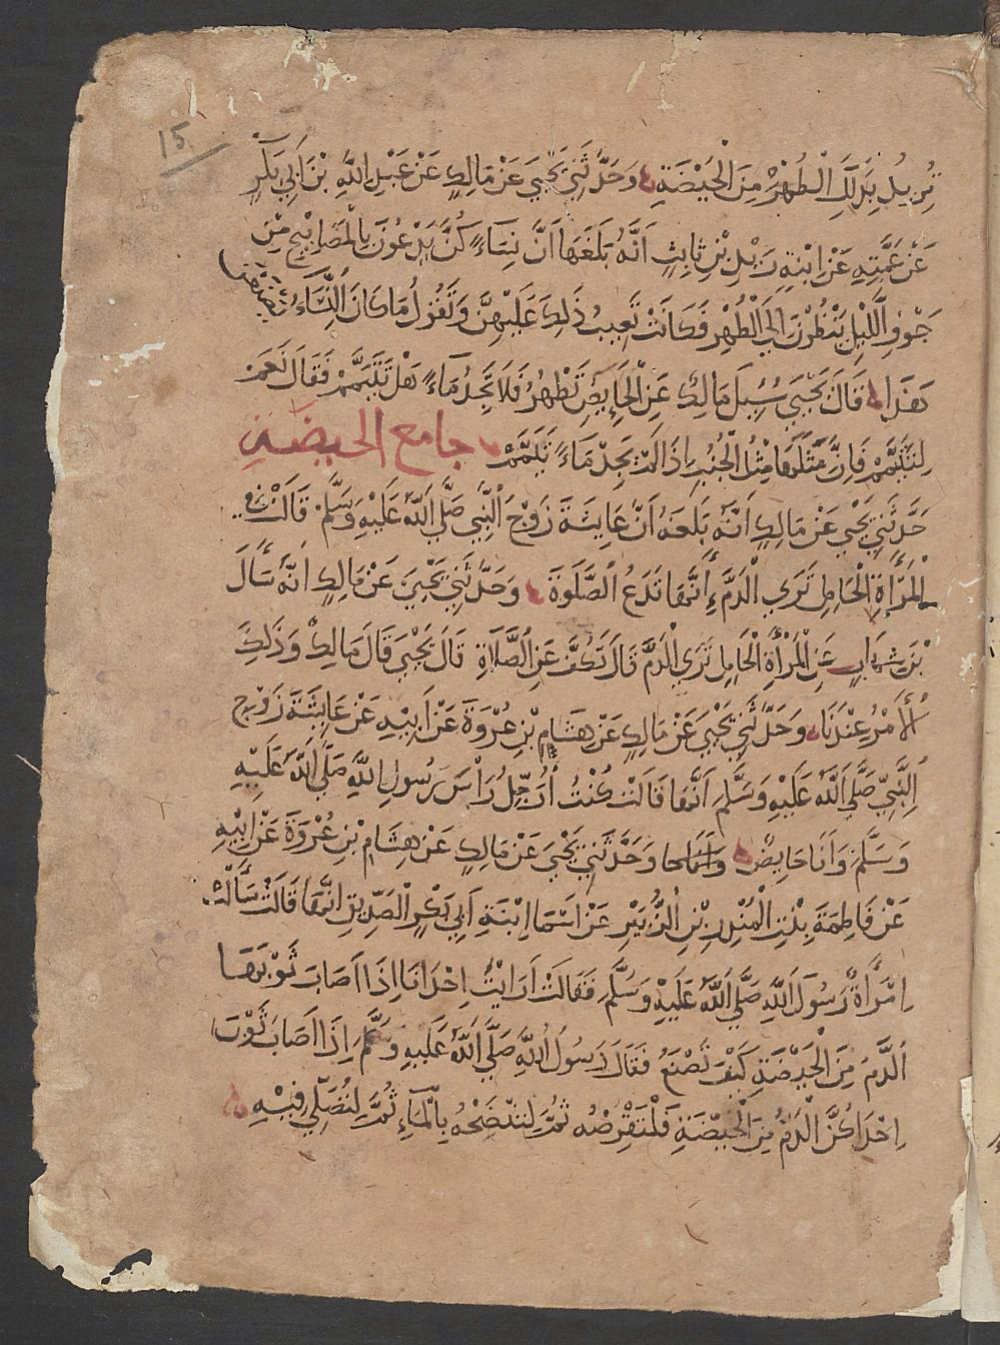 15
تُرِيدُ بِذَلِكَ الطُّهْرَ مِنَ الْحَيْضَةِ وَحَدَّثَنِي يَحْيَى عَنْ مَالِكٍ عَنْ عَبْدِ اللَّهِ بْنِ أَبِي بَكْرٍ
عَنْ عَمَّتِهِ عَنْ ابْنَةِ زَيْدِ بْنِ ثَابِتٍ أَنَّهُ بَلَغَهَا أَنَّ نِسَاءً كُنَّ يَدْعُونَ بِالْمَصَابِيحِ مِنْ
جَوْفِ اللَّيْلِ يَنْظُرْنَ إِلَى الطُّهْرِ فَكَانَتْ تَعِيبُ ذَلِكَ عَلَيْهِنَّ وَتَقُولُ مَا كَانَ النِّسَاءُ يَصْنَعْنَ
هَذَا قَالَ يَحْيَى سُئِلَ مَالِكٌ عَنِ الْحَائِضِ تَطْهُرُ فَلَا تَجِدُ مَاءً هَلْ تَتَيَمَّمُ فَقَالَ نَعَمْ
لِتَتَيَمَّمْ فَإِنَّ مَثَلَهَا مِثْلُ الْجُنُبِ إِذَا لَمْ يَجِدْ مَاءً تَيَمَّمَ جامع الحيضة
حَدَّثَنِي يَحْيَى عَنْ مَالِكٍ أَنَّهُ بَلَغَهُ أَنَّ عَايِشَةَ زَوْجَ النَّبِيِّ صَلَّى اللَّهُ عَلَيْهِ وَسَلَّمَ قَالَتْ فِي
الْمَرْأَةِ الْحَامِلِ تَرَى الدَّمَ أَنَّهَا تَدَعُ الصَّلَوةَ وَحَدَّثَنِي يَحْيَى عَنْ مَالِكٍ أَنَّهُ سَأَلَ
بْنَ شِهَابٍ عَنِ الْمَرْأَةِ الْحَامِلِ تَرَى الدَّمَ قَالَ تَكُفُّ عَنِ الصَّلَاةِ قَالَ يَحْيَى قَالَ مَالِكٌ وَذَلِكَ
الْأَمْرُ عِنْدَنَا وَحَدَّثَنِي يَحْيَى عَنْ مَالِكٍ عَنْ هِشَامِ بْنِ عُرْوَةَ عَنْ أَبِيهِ عَنْ عَايِشَةَ زَوْجِ
النَّبِيِّ صَلَّى اللَّهُ عَلَيْهِ وَسَلَّمَ أَنَّهَا قَالَتْ كُنْتُ أُرَجِّلُ رَأْسَ رَسُولِ اللَّهِ صَلَّى اللَّهُ عَلَيْهِ
وَسَلَّمَ وَأَنَا حَايِضٌ وَحَدَّثَنِي يَحْيَى عَنْ مَالِكٍ عَنْ هِشَامِ بْنِ عُرْوَةَ عَنْ أَبِيهِ
عَنْ فَاطِمَةَ بِنْتِ الْمُنْذِرِ بْنِ الزُّبَيْرِ عَنْ أَسْمَا ابْنَةِ أَبِي بَكْرٍ الصِّدِّيقِ أَنَّهَا قَالَتْ سَأَلَتْ
امْرَأَةٌ رَسُولَ اللَّهِ صَلَّى اللَّهُ عَلَيْهِ وَسَلَّمَ فَقَالَتْ أَرَأَيْتَ إِحْدَانَا إِذَا أَصَابَ ثَوْبَهَا
الدَّمَ مِنَ الْحَيْضَةِ كَيْفَ تَصْنَعُ فَقَالَ رَسُولُ اللَّهِ صَلَّى اللَّهُ عَلَيْهِ وَسَلَّمَ إِذَا أَصَابَ ثَوْبَ
إِحْدَاكُنَّ الدَّمُ مِنَ الْحَيْضَةِ فَلْتَقْرُصْهُ ثُمَّ لِتَنْضَحْهُ بِالْمَاءِ ثُمَّ لِتُصَلِّي فِيهِ